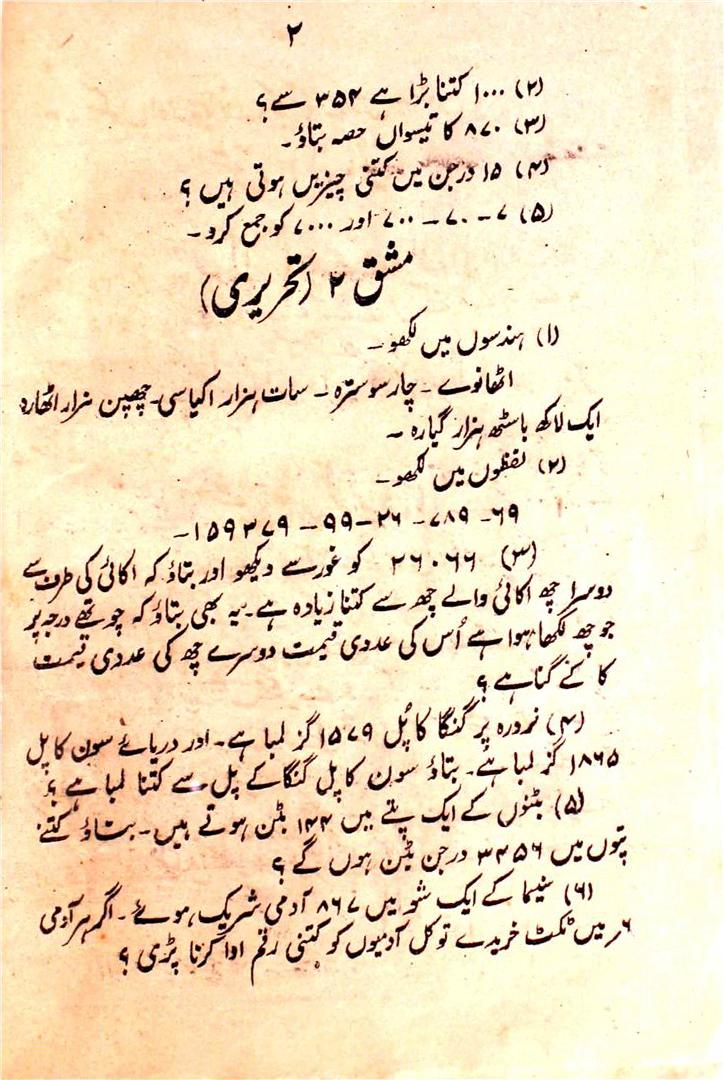 ۲
(۲) ۱۰۰۰ کتنا بڑا ہے ۳۵۴ سے؟
(۳) ۸۷۰ کا تیسواں حصہ بتاؤ۔
(۴) ۱۵ درجن میں کتنی چیزیں ہوتی ہیں ؟
(۵) ۷ - ۷۰ - ۷۰۰ اور ۷۰۰۰ کو جمع کرو۔
مشق ۲ (تحریری)
(۱) ہندسوں میں لکھو۔
اٹھانوے - چار سو سترہ - سات ہزار اکیاسی - چھپن ہزار اٹھارہ
ایک لاکھ باسٹھ ہزار گیارہ ۔
(۲) لفظوں میں لکھو۔
۶۹ - ۷۸۹ - ۲۶ - ۹۹ - ۱۵۹۳۷۹ -
(۳) ۲۶۰۶۶ کو غور سے دیکھو اور بتاؤ کہ اکائی کی طرف سے
دوسرا چھ اکائی والے چھ سے کتنا زیادہ ہے۔ یہ بھی بتاؤ کہ چوتھے درجہ پر
جو چھ لکھا ہوا ہے اُس کی عددی قیمت دوسرے چھ کی عددی قیمت
کا کے گنا ہے ؟
(۴) نرورہ پر گنگا کا پُل ۱۵۷۹ گز لمبا ہے۔ اور دریائے سون کا پل
۱۸۶۵ گز لمبا ہے۔ بتاؤ سون کا پل گنگا کے پل سے کتنا لمبا ہے ؟
(۵) بٹنوں کے ایک پتے میں ۱۴۴ بٹن ہوتے ہیں۔ بتاؤ کتنے
پتوں میں ۳۴۵۶ درجن بٹن ہوں گے ؟
(۶) سنیما کے ایک شو میں ۸۶۷ آدمی شریک ہوئے ۔ اگر ہر آدمی
۶؍ میں ٹکٹ خریدے تو کل آدمیوں کو کتنی رقم ادا کرنا پڑی ؟